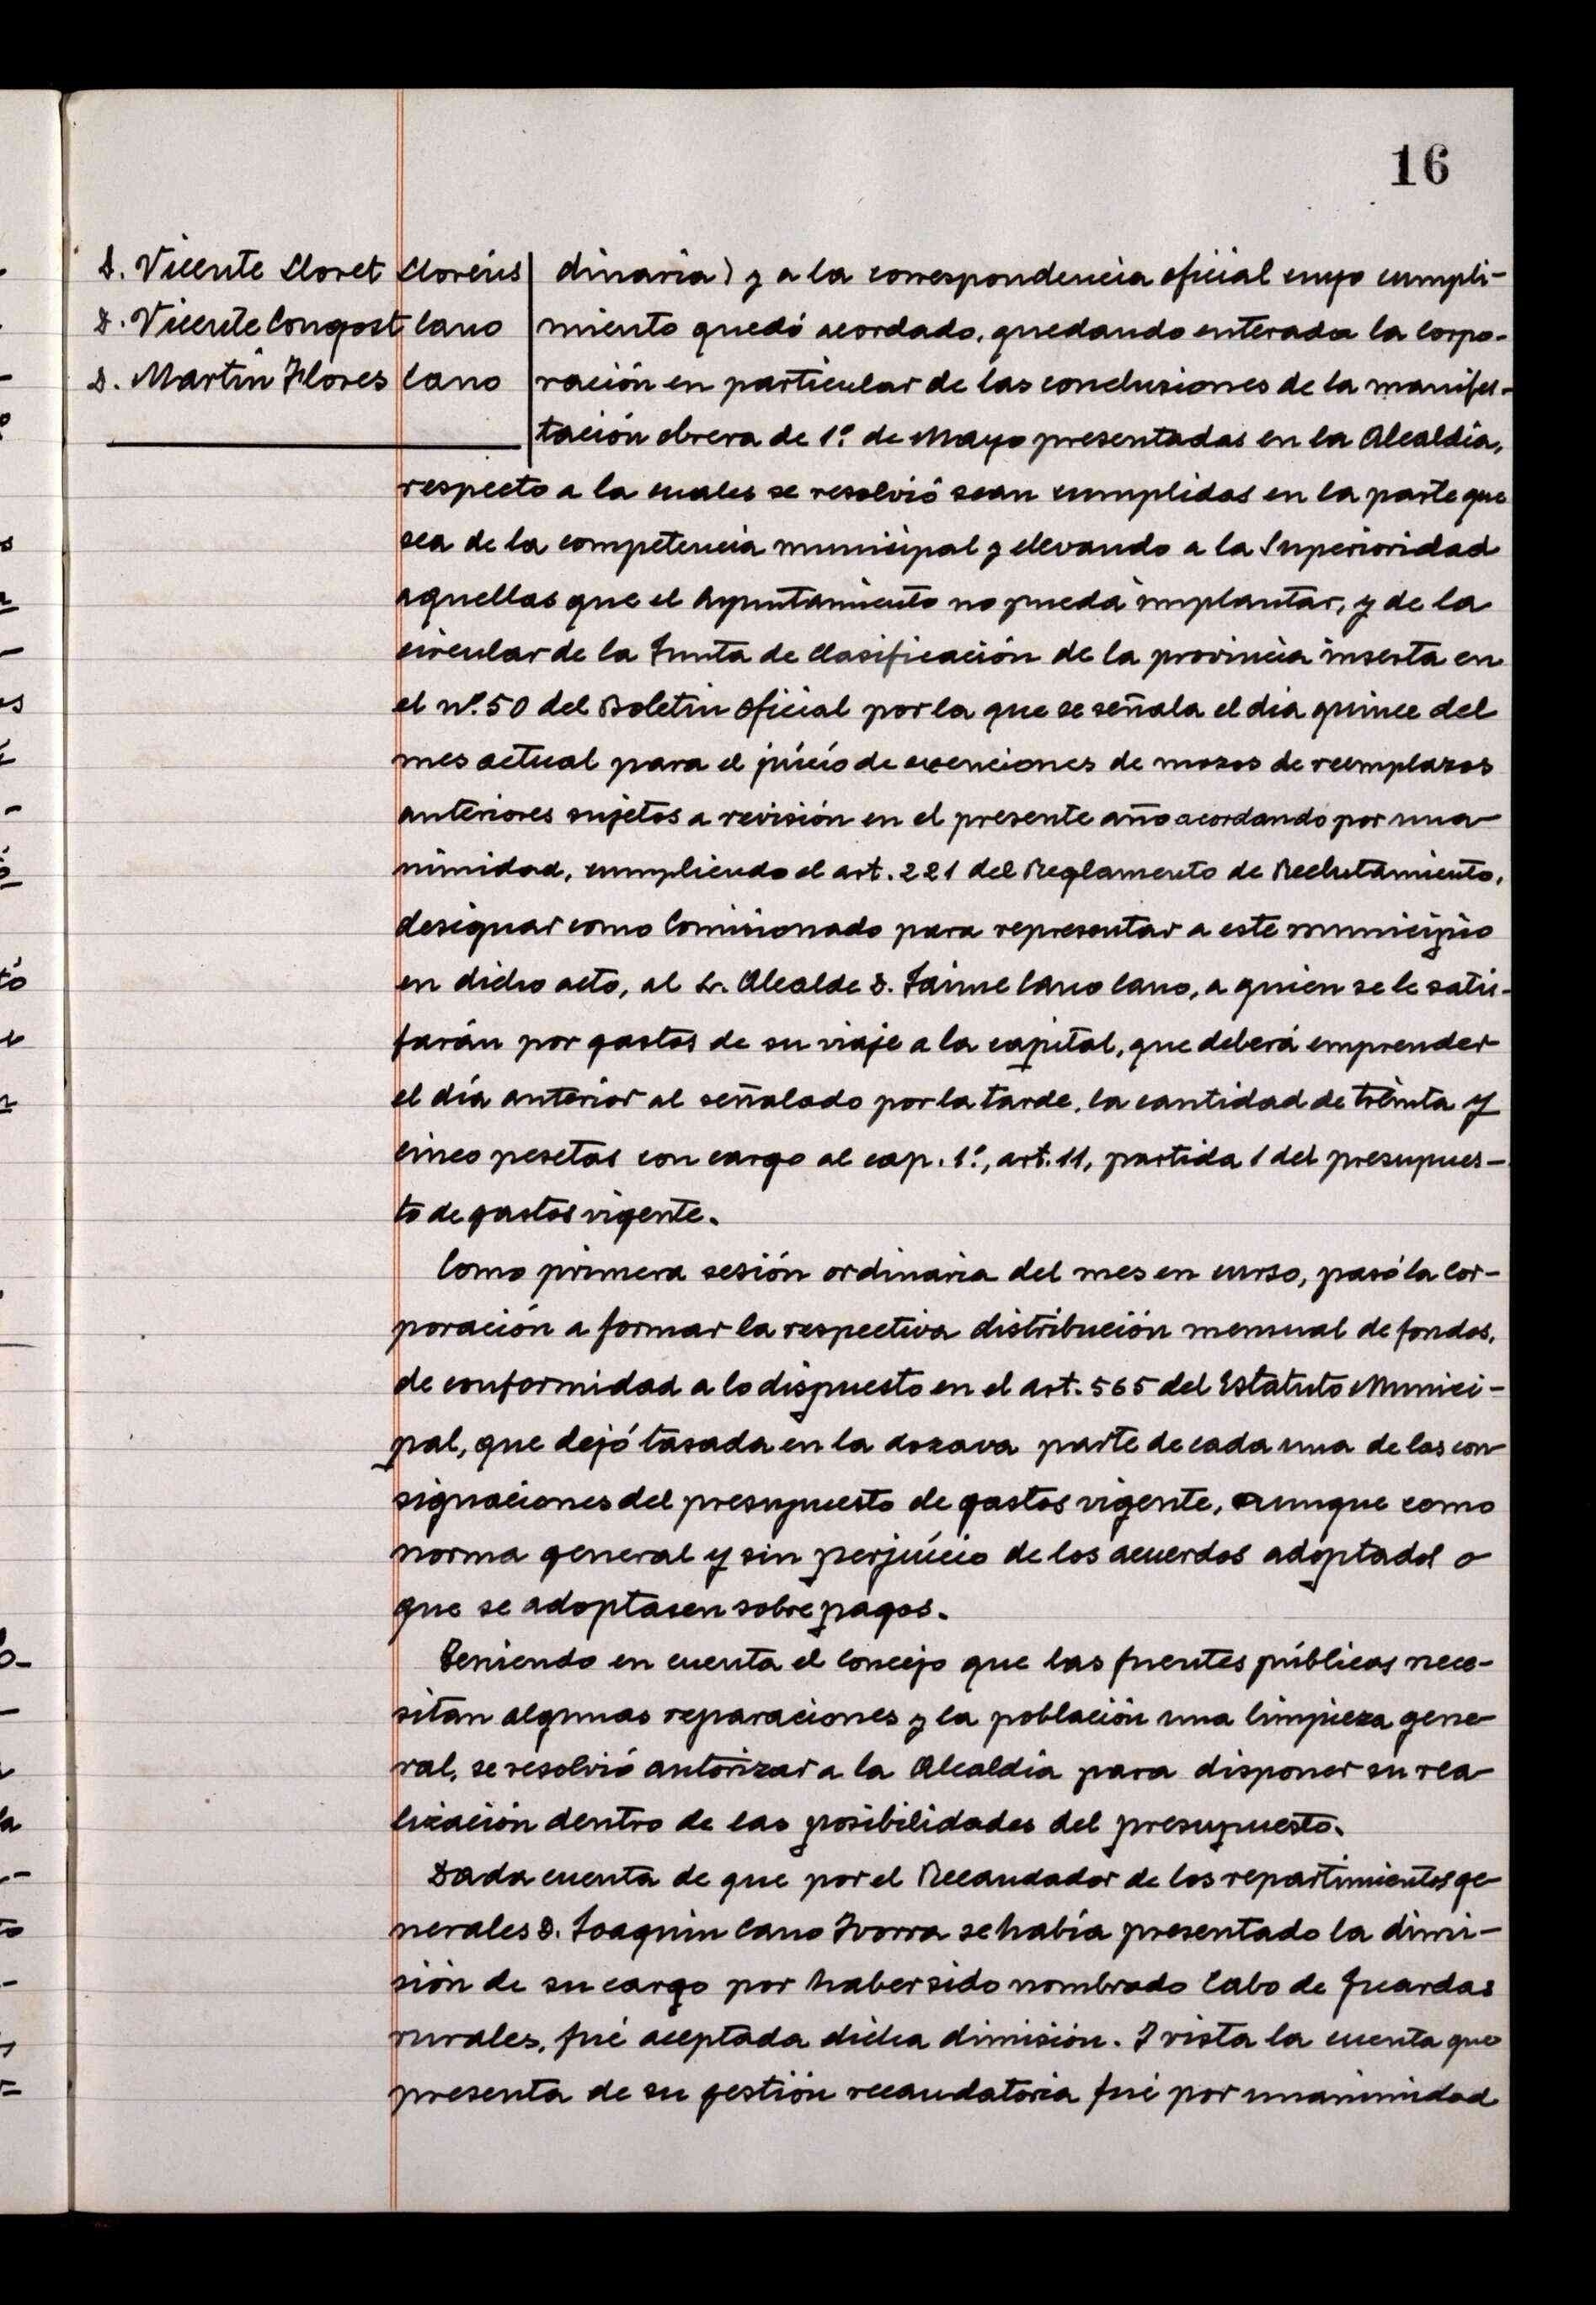 16
D. Vicente Lloret Lloréns
D. Vicente Congost Cano
D. Martín Flores Cano
dinaria) y a la correspondencia oficial cuyo cumpli-
miento quedó acordado, quedando enterada la Corpo-
ración en particular de las conclusiones de la manifes-
tación obrera de 1º de Mayo presentadas en la Alcaldía,
respecto a la cuales se resolvió sean cumplidas en la parte que
sea de la competencia municipal y elevando a la Superioridad
aquellas que el Ayuntamiento no pueda implantar, y de la
circular de la Junta de Clasificación de la provincia inserta en
el nº. 50 del Boletin Oficial por la que se señala el dia quince del
mes actual para el juicio de exenciones de mozos de reemplazos
anteriores sujetos a revisión en el presente año acordando por una
nimidad, cumpliendo el art. 221 del Reglamento de Reclutamiento,
designar como Comisionado para representar a este municipio
en dicho acto, al Sr. Alcalde D. Jaime Cano Cano, a quien se le satis-
farán por gastos de su viaje a la capital, que deberá emprender
el día anterior al señalado por la tarde, la cantidad de treinta y
cinco pesetas con cargo al cap. 1º, art. 11, partida 1 del presupues-
to de gastos vigente.
Como primera sesión ordinaria del mes en curso, pasó la Cor-
poración a formar la respectiva distribución mensual de fondos,
de conformidad a lo dispuesto en el art. 565 del Estatuto Munici-
pal, que dejó tasada en la dozava parte de cada una de las con
signaciones del presupuesto de gastos vigente, aunque como
norma general y sin perjuicio de los acuerdos adoptados o
que se adoptasen sobre pagos.
Teniendo en cuenta el Concejo que las fuentes públicas nece-
sitan algunas reparaciones y la población una limpieza gene-
ral, se resolvió autorizar a la Alcaldía para disponer su rea-
lización dentro de las posibilidades del presupuesto.
Dada cuenta de que por el Recaudador de los repartimientos ge-
nerales D. Joaquin Cano Ivorra se había presentado la dimi-
sión de su cargo por haber sido nombrado Cabo de Guardas
rurales, fué aceptada dicha dimisión. Y vista la cuenta que
presenta de su gestión recaudatoria fué por unanimidad